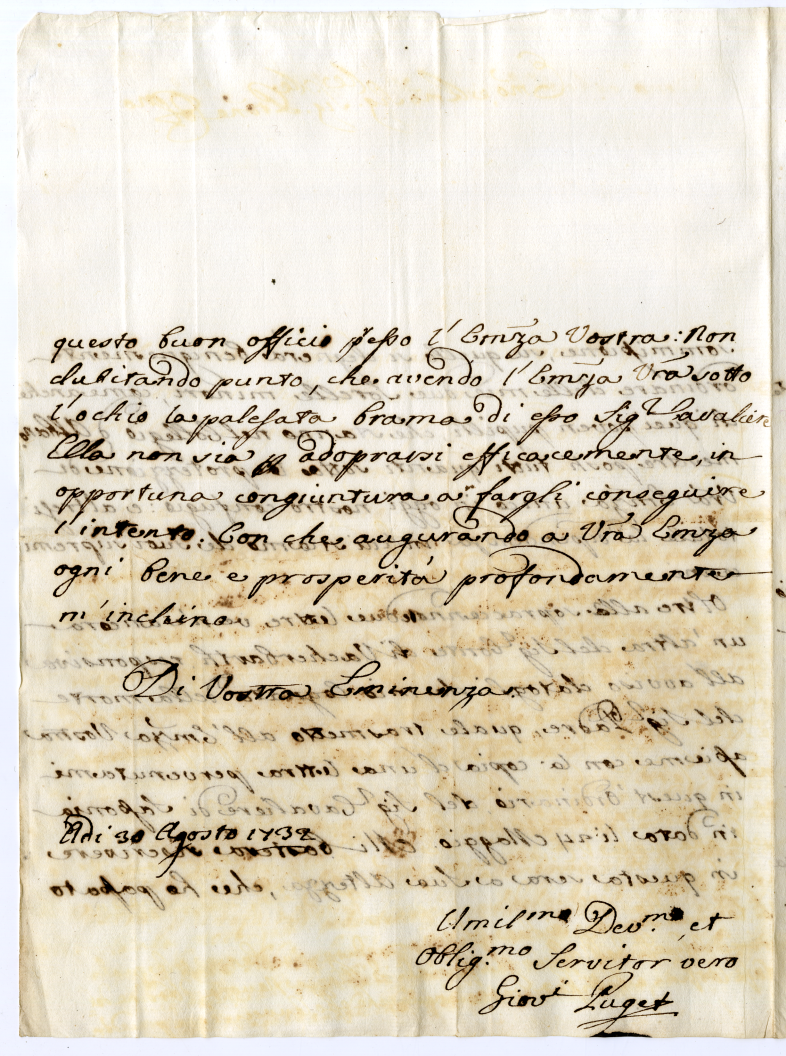 questo buon officio p̃esso l' Em̃za Vostra: Non
dubitando punto, che avendo l' Em̃za Vr̃a sotto
l'ochio la palesata brama di esso Sig.r Cavaliere
Ella non sia p adoprarsi efficacemente, in
opportuna congiuntura a fargli conseguire
l'intento. Con che augurando a Vr̃a Em̃za
ogni bene e prosperità profondamente
m'inchino
Di Vostra Eminenza.
Adi 30 Agosto 1738
Umil.mo Dev.mo et
Oblig.mo Servitor vero
Giov.i Puget